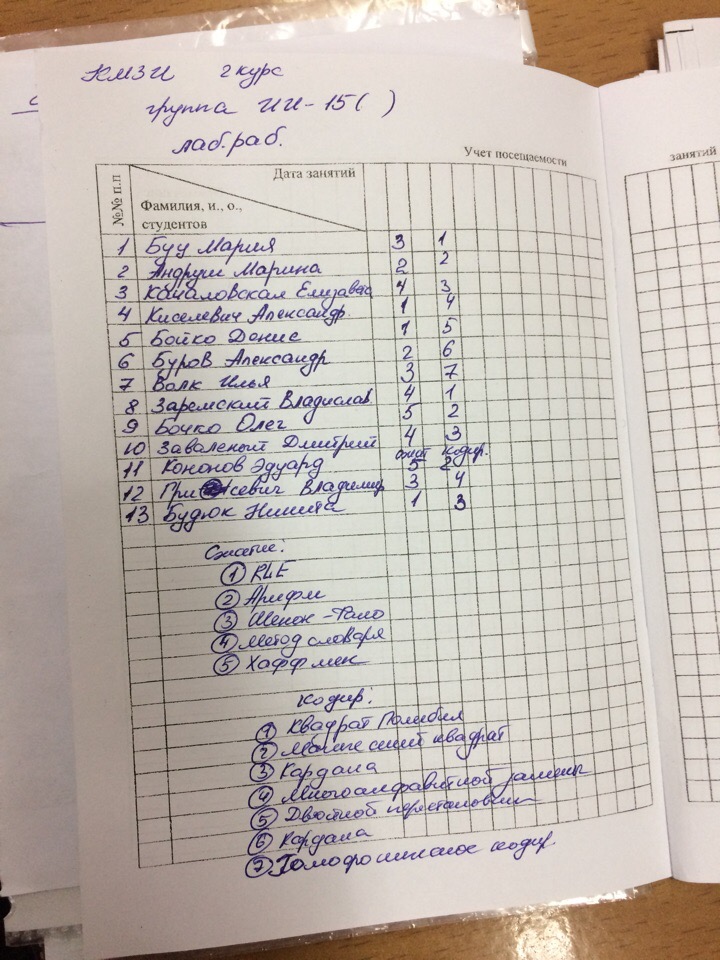 КМЗИ 2 курс
группа ИИ-15( )
лаб.раб.
Учет посещаемости
занятий
№№ п.п
Дата занятий
Фамилия, и., о.,
студентов
1 Буц Мария 3 1
2 Андруш Марина 2 2
3 Качаловская Елизавета 4 3
4 Киселевич Александр 1 4
5 Бойко Денис 1 5
6 Буров Александр 2 6
7 Волк Илья 3 7
8 Заремский Владислав 4 1
9 Бочко Олег 5 2
10 Заваленый Дмитрий 4 3
сжат кодир.
11 Кононов Эдуард 5 2
12 Владимир 3 4
13 Будюк Никита 1 3
Сжатие:
1 RLE
2 Арифм
3 Шенон-Фано
4 Метод словаря
5 Хаффмен
Кодир.
1 Квадрат Полибия
2 Магический квадрат
3 Кардана
4 Многоалфавитной замены
5 Двойной перестановки
6 Кардана
7 кодир.